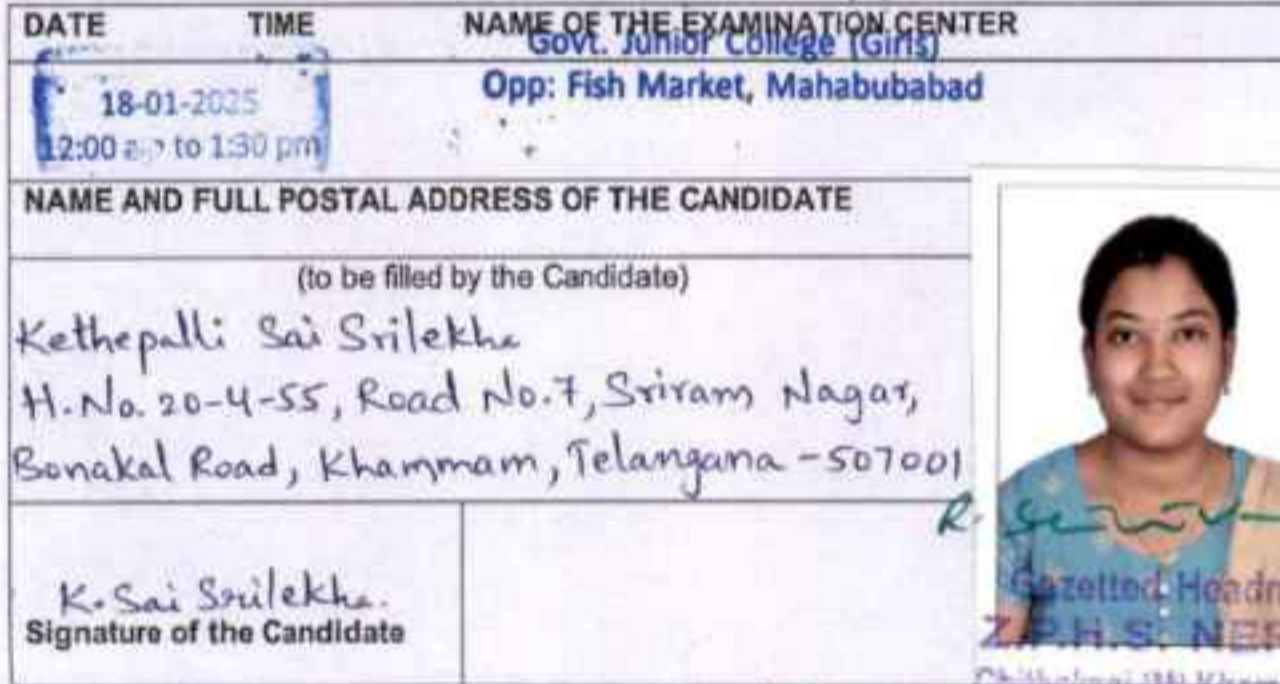 DATE TIME NAME OF THE EXAMINATION CENTER
Govt. Junior College (Girls)
Opp: Fish Market, Mahabubabad
18-01-2025
12:00 to 1:30 pm
NAME AND FULL POSTAL ADDRESS OF THE CANDIDATE
(to be filled by the Candidate)
Kethepalli Sai Srilekha
H.No. 20-4-55, Road No.7, Sriram Nagar,
Bonakal Road, Khammam, Telangana - 507001
K. Sai Srilekha.
Signature of the Candidate
R.
Gazetted
Z.P.H.S.